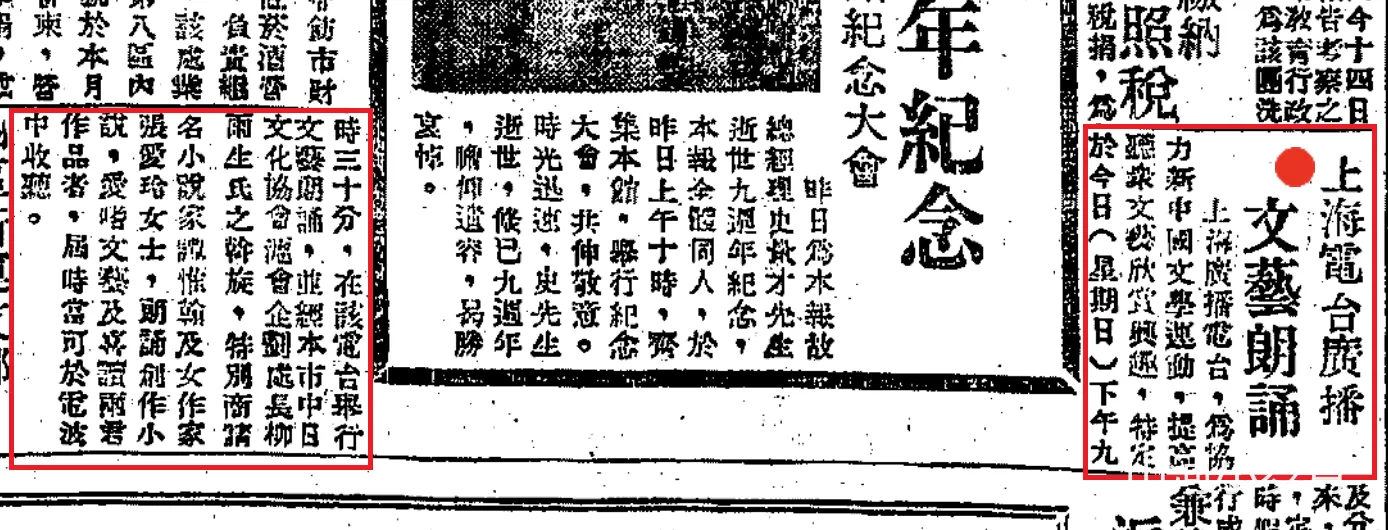 今十四日
教育行政
爲該團洗
繳納
照稅
稅捐，爲
上海電台廣播
文藝朗誦
上海廣播電台，爲協
力新中國文學運動，提高
聽衆文藝欣賞興趣，特定
於今日（星期日）下午九
年紀念
紀念大會
昨日爲本報故
總經理史量才先生
逝世九週年紀念，
本報全體同人，於
昨日上午十時，齊
集本館，舉行紀念
大會，共伸敬意。
時光迅速，史先生
逝世，倏已九週年
，瞻仰遺容，曷勝
哀悼。
飭市財
菸酒
負責組
該處業
八區內
於本月
東，暨
時三十分，在該電台舉行
文藝朗誦，並經本市中日
文化協會滬會企劃處長柳
雨生氏之斡旋，特別商請
名小說家譚惟翰及女作家
張愛玲女士，朗誦創作小
說，愛唔文藝及喜讀兩君
作品者，屆時當可於電波
中收聽。